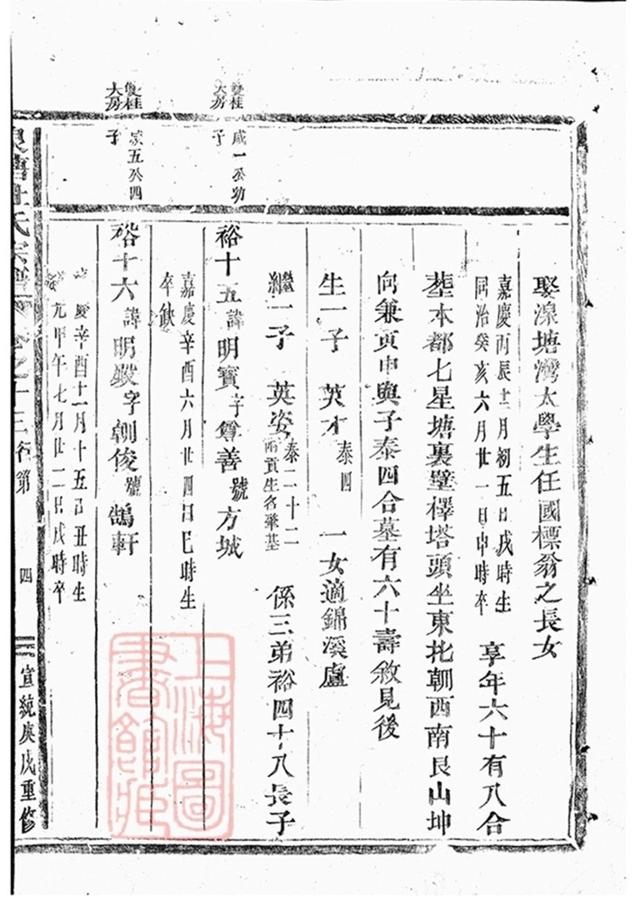 娶湶塘灣太學生任國標翁之長女
嘉慶丙辰十二月初五日戌時生
同治癸亥六月廿一日申時卒
享年六十有八合
塟本都七星塘裏壁檡塔頭坐東北朝西南艮山坤
向兼寅申與子泰四合墓有六十壽敘見後
生一子 英才 泰四 一女適錦溪盧
繼一子 英姿 泰二十二 係三弟裕四十八長子
雙桂大房
咸一公幼子
裕十五 諱明寳字尊善號方城
嘉慶辛酉六月廿四日巳時生
卒缺
雙桂大房
五公四子
裕十六 諱明 字朝俊號鵠軒
慶辛酉十一月十五日丑時生
光甲午七月廿二日戌時卒
杜氏宗譜
卷之十三
名第
四
宣統庚戌重修
上海圖書館藏